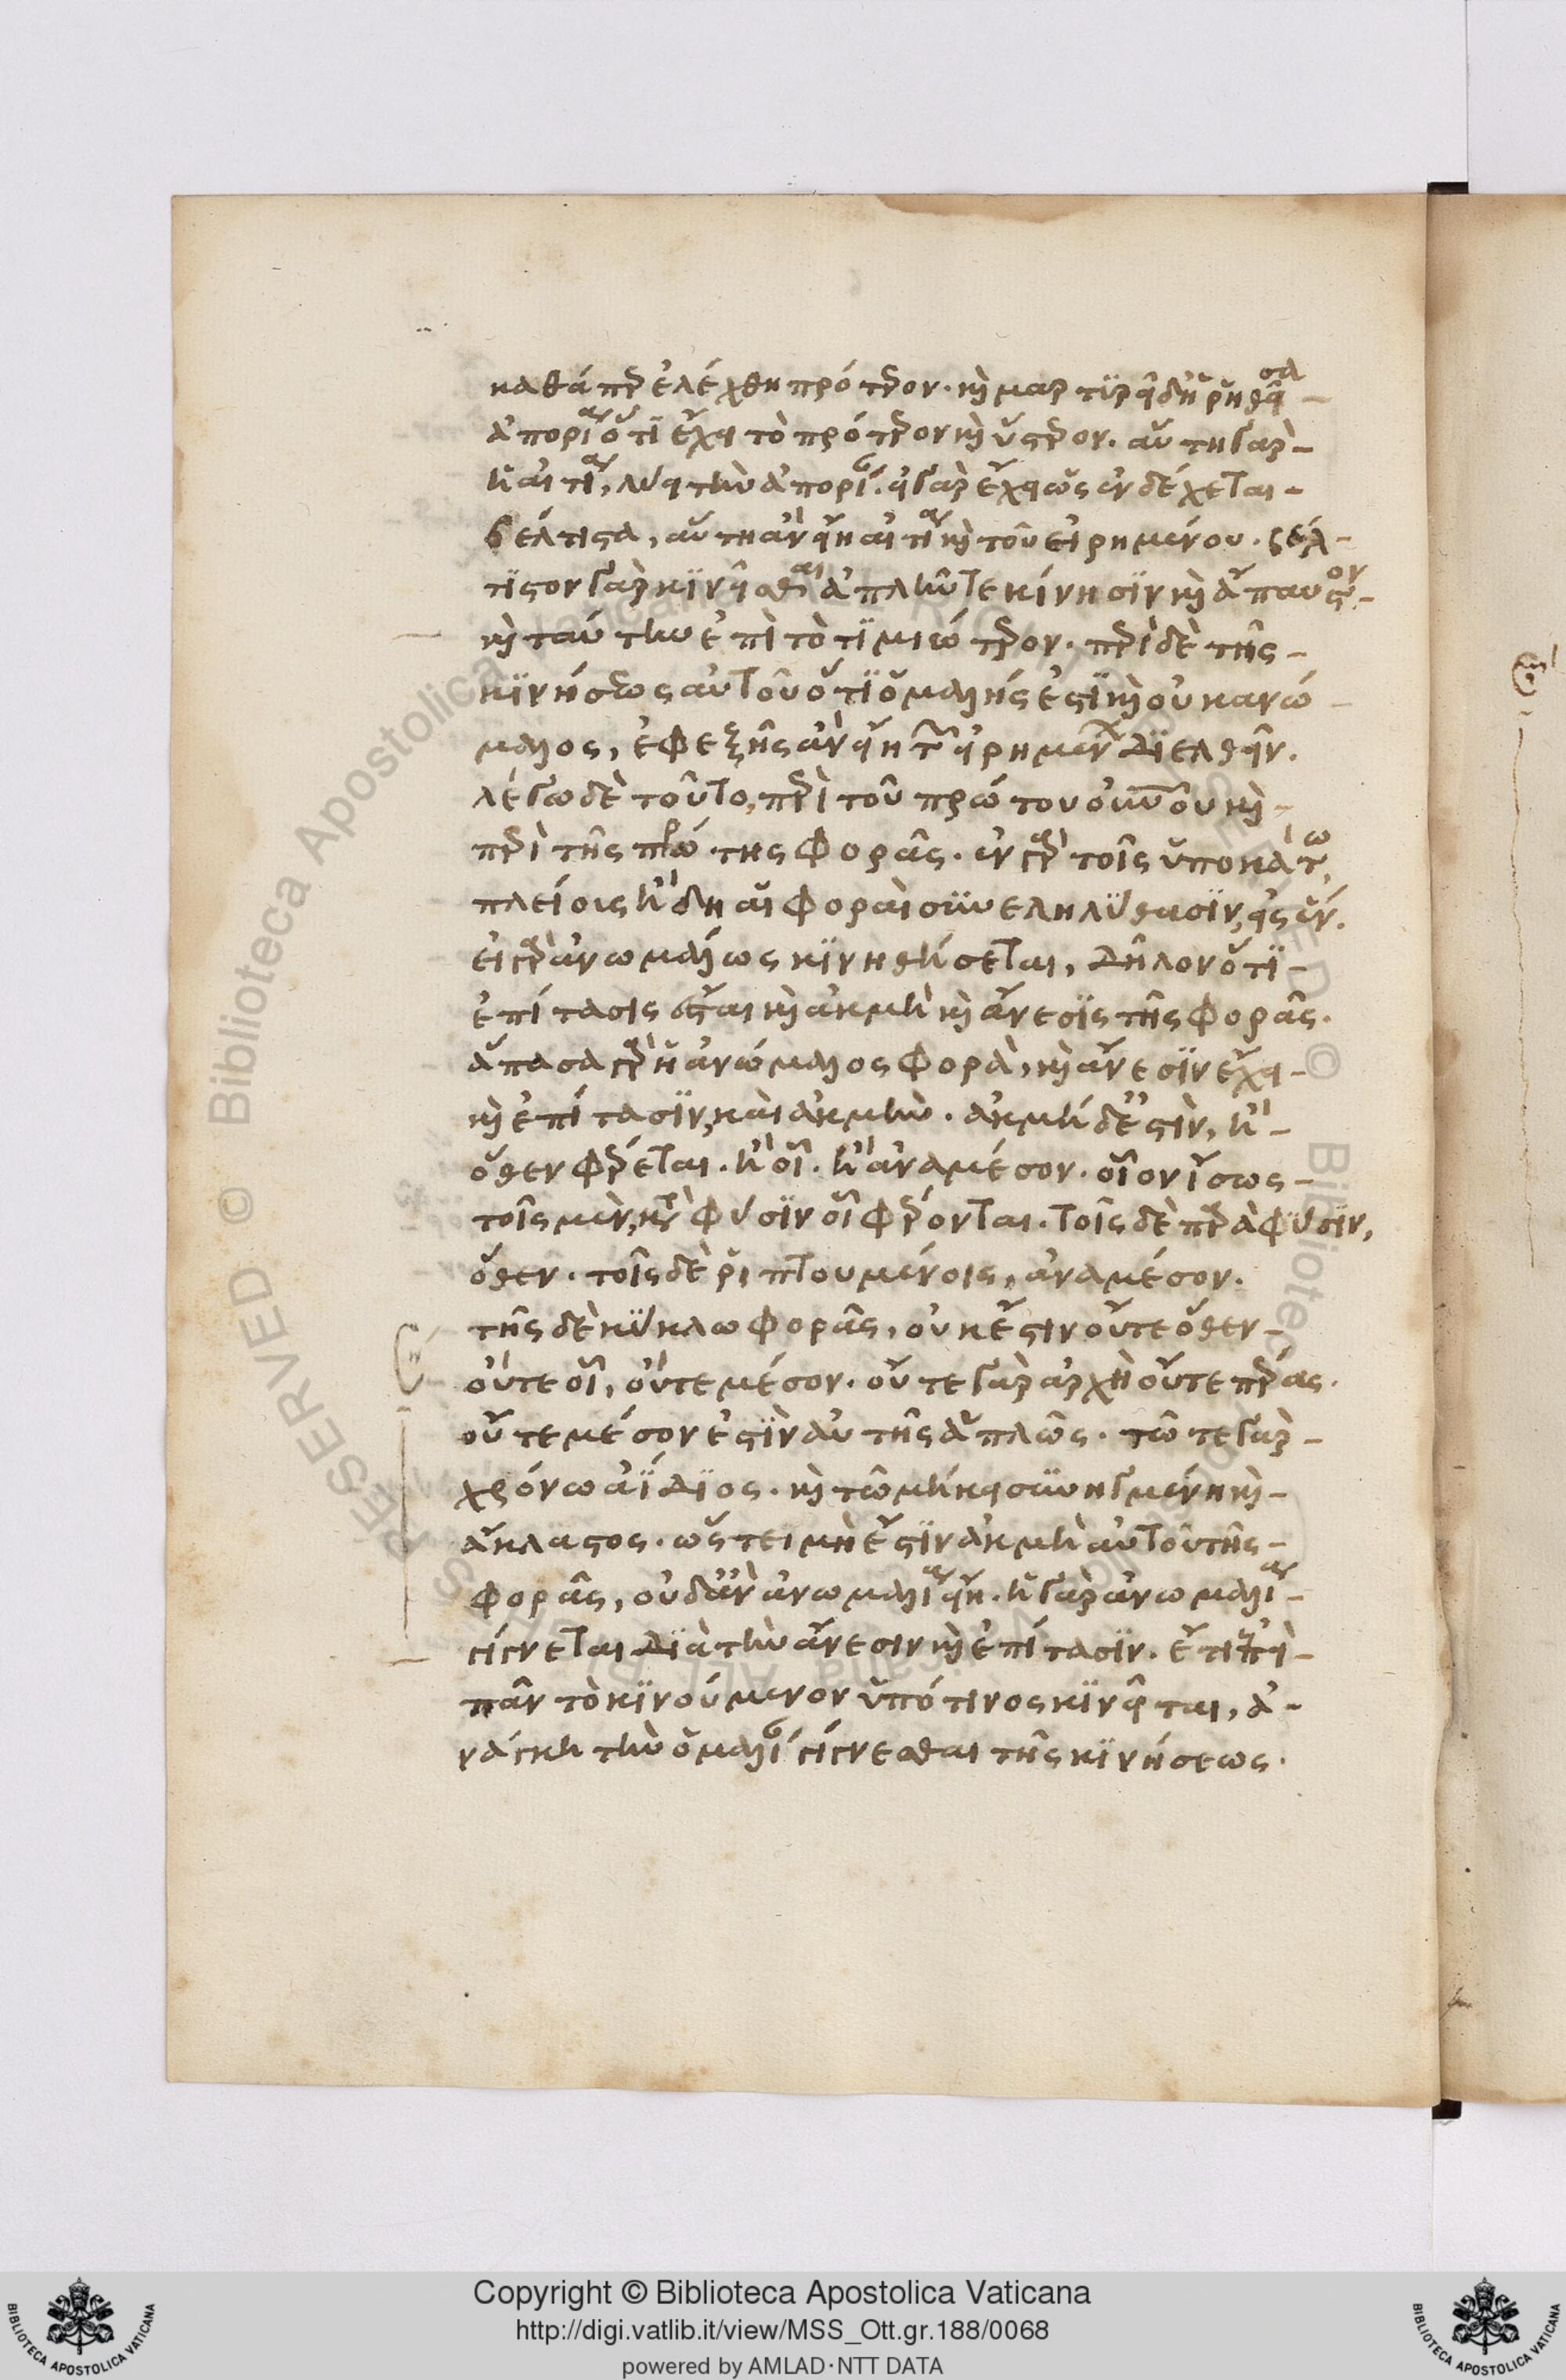 καθάπερ ἐλέχθη πρότερον· καὶ μαρτυρεῖ δ' ἡ ῥηθεῖσα
ἀπορία ὅτι ἔχει τὸ πρότερον καὶ ὕστερον. αὕτη γὰρ
ἡ αἰτία, λύει τὴν ἀπορίαν. εἰ γὰρ ἔχει ὡς ἐνδέχεται
βέλτιστα, αὕτη ἂν εἴη αἰτία καὶ τοῦ εἰρημένου. βέλ-
τιστον γὰρ κινεῖσθαι ἁπλῆν τε κίνησιν καὶ ἄπαυστον.
καὶ ταύτην ἐπὶ τὸ τιμιώτερον. περὶ δὲ τῆς
κινήσεως αὐτοῦ ὅτι ὁμαλής ἐστι καὶ οὐκ ἀνώ-
μαλος, ἐφεξῆς ἂν εἴη τῶν εἰρημένων διελθεῖν.
λέγω δὲ τοῦτο, περὶ τοῦ πρώτου οὐρανοῦ καὶ
περὶ τῆς πρώτης φορᾶς. ἐν γὰρ τοῖς ὑποκάτω,
πλείοις ἤδη αἱ φοραὶ συνεληλύθασιν, εἰς ἕν.
εἰ γὰρ ἀνωμάλως κινηθήσεται, δῆλον ὅτι
ἐπίτασις ἔσται καὶ ἀκμὴ καὶ ἄνεσις τῆς φορᾶς.
ἅπασα γὰρ ἡ ἀνώμαλος φορὰ, καὶ ἄνεσιν ἔχει
καὶ ἐπίτασιν, καὶ ἀκμήν. ἀκμὴ δ' ἔστιν, ἢ
ὅθεν φέρεται. ἢ οἷ. ἢ ἀνὰ μέσον. οἷον ἴσως
τοῖς μὲν, κατὰ φύσιν οἷ φέρονται. τοῖς δὲ παρὰ φύσιν,
ὅθεν. τοῖς δὲ ῥιπτουμένοις, ἀνὰ μέσον.
τῆς δὲ κύκλω φορᾶς, οὐκ ἔστιν οὔτε ὅθεν
οὔτε οἷ, οὔτε μέσον. οὔτε γὰρ ἀρχὴ οὔτε πέρας.
οὔτε μέσον ἐστὶν αὐτῆς ἁπλῶς. τῶ τε γὰρ
χρόνω ἀΐδιος. καὶ τῶ μήκει συνηγμένη καὶ
ἄκλαστος. ὥστ' εἰ μὴ ἔστιν ἀκμὴ αὐτοῦ τῆς
φορᾶς, οὐδ' ἂν ἀνωμαλία εἴη. ἡ γὰρ ἀνωμαλία
γίγνεται διὰ τὴν ἄνεσιν καὶ ἐπίτασιν. ἔτι δ' ἐπεὶ
πᾶν τὸ κινούμενον ὑπό τινος κινεῖται, ἀ-
νάγκη τὴν ὁμαλίαν γίγνεσθαι τῆς κινήσεως.
Copyright © Biblioteca Apostolica Vaticana
http://digi.vatlib.it/view/MSS_Ott.gr.188/0068
powered by AMLAD·NTT DATA